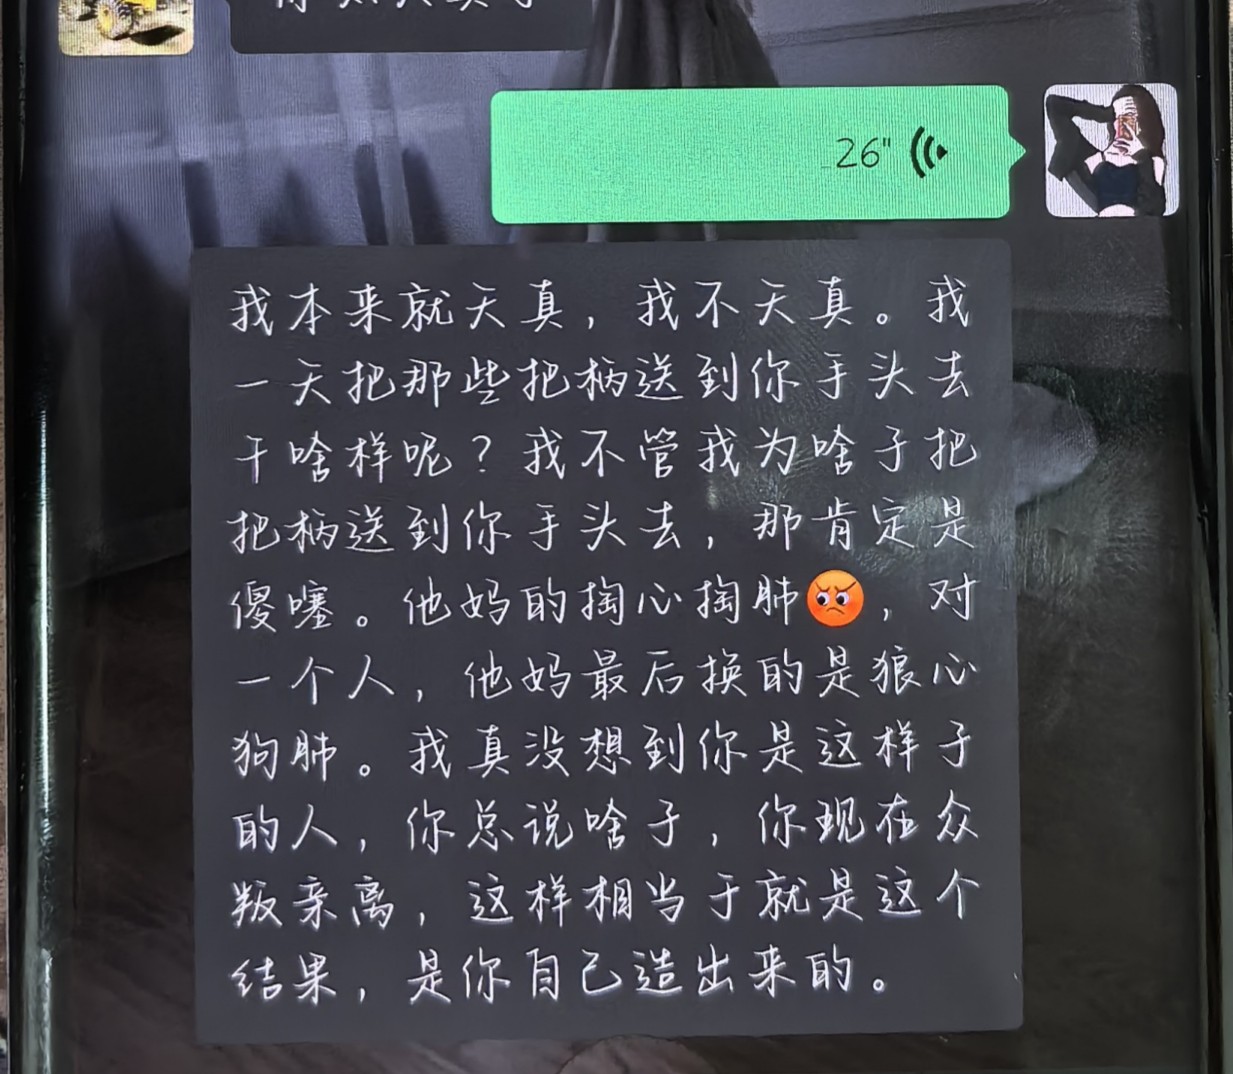 26"
我本来就天真，我不天真。我
一天把那些把柄送到你手头去
干啥样呢？我不管我为啥子把
把柄送到你手头去，那肯定是
傻噻。他妈的掏心掏肺😡，对
一个人，他妈最后换的是狼心
狗肺。我真没想到你是这样子
的人，你总说啥子，你现在众
叛亲离，这样相当于就是这个
结果，是你自己造出来的。